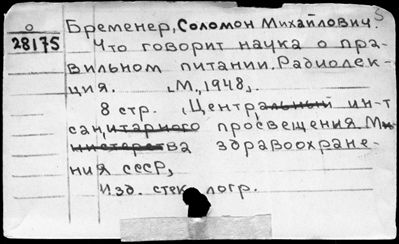 5
Бременер, Соломон Михайлович.
0
28175
Что говорит наука о пра-
вильном питании. Радиолек-
ция. [М., 1948].
8 стр. (Центральный ин-т
санитарного просвещения Ми-
нистерства здравоохране-
ния СССР,
Изд. стеклогр.